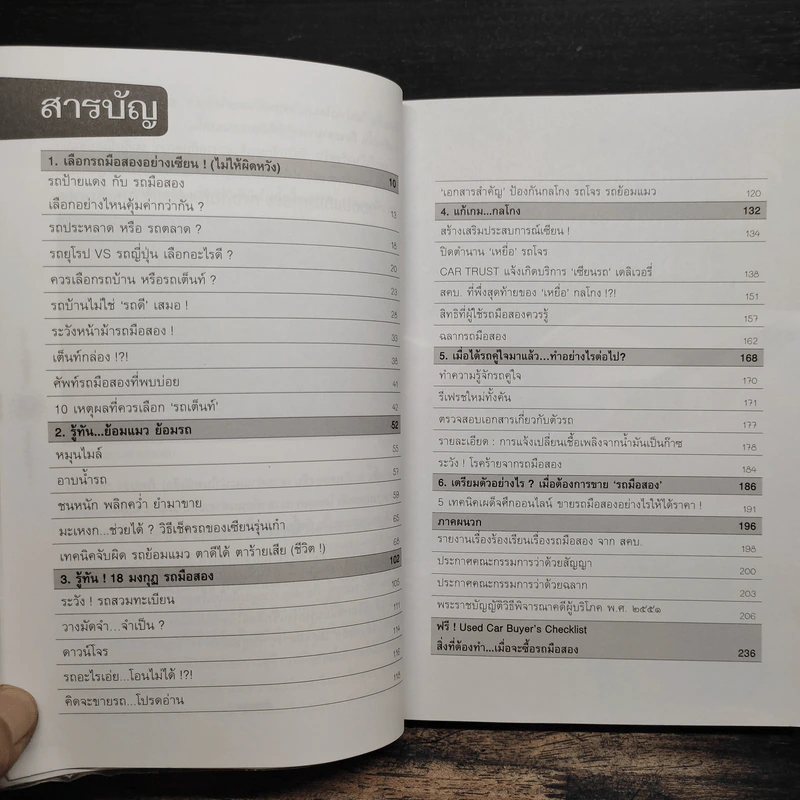 สารบัญ
1. เลือกรถมือสองอย่างเซียน ! (ไม่ให้ผิดหวัง) 10
รถป้ายแดง กับ รถมือสอง
เลือกอย่างไหนคุ้มค่ากว่ากัน ? 13
รถประหลาด หรือ รถตลาด ? 18
รถยุโรป VS รถญี่ปุ่น เลือกอะไรดี ? 20
ควรเลือกรถบ้าน หรือรถเต็นท์ ? 23
รถบ้านไม่ใช่ ‘รถดี’ เสมอ ! 28
ระวังหน้าม้ารถมือสอง ! 33
เต็นท์กล่อง !?! 36
ศัพท์รถมือสองที่พบบ่อย 41
10 เหตุผลที่ควรเลือก ‘รถเต็นท์’ 42
2. รู้ทัน...ย้อมแมว ย้อมรถ 52
หมุนไมล์ 55
อาบน้ำรถ 57
ชนหนัก พลิกคว่ำ ยำมาขาย 59
มะเหงก...ช่วยได้ ? วิธีเช็ครถของเซียนรุ่นเก๋า 65
เทคนิคจับผิด รถย้อมแมว ตาดีได้ ตาร้ายเสีย (ชีวิต !) 68
3. รู้ทัน ! 18 มงกุฎ รถมือสอง 102
ระวัง ! รถสวมทะเบียน 105
วางมัดจำ...จำเป็น ? 111
ดาวน์โจร 114
รถอะไรเอ่ย...โอนไม่ได้ !?! 116
คิดจะขายรถ...โปรดอ่าน 118
‘เอกสารสำคัญ’ ป้องกันกลโกง รถโจร รถย้อมแมว 120
4. แก้เกม...กลโกง 132
สร้างเสริมประสบการณ์เซียน ! 134
ปิดตำนาน ‘เหยื่อ’ รถโจร
CAR TRUST แจ้งเกิดบริการ ‘เซียนรถ’ เดลิเวอรี่ 138
สคบ. ที่พึ่งสุดท้ายของ ‘เหยื่อ’ กลโกง !?! 151
สิทธิที่ผู้ใช้รถมือสองควรรู้ 157
ฉลากรถมือสอง 162
5. เมื่อได้รถคู่ใจมาแล้ว...ทำอย่างไรต่อไป? 168
ทำความรู้จักรถคู่ใจ 170
รีเฟรชใหม่ทั้งคัน 171
ตรวจสอบเอกสารเกี่ยวกับตัวรถ 177
รายละเอียด : การแจ้งเปลี่ยนเชื้อเพลิงจากน้ำมันเป็นก๊าซ 178
ระวัง ! โรคร้ายจากรถมือสอง 184
6. เตรียมตัวอย่างไร ? เมื่อต้องการขาย ‘รถมือสอง’ 186
5 เทคนิคเผด็จศึกออนไลน์ ขายรถมือสองอย่างไรให้ได้ราคา ! 191
ภาคผนวก 196
รายงานเรื่องร้องเรียนเรื่องรถมือสอง จาก สคบ. 198
ประกาศคณะกรรมการว่าด้วยสัญญา 200
ประกาศคณะกรรมการว่าด้วยฉลาก 203
พระราชบัญญัติวิธีพิจารณาคดีผู้บริโภค พ.ศ. ๒๕๕๑ 206
ฟรี ! Used Car Buyer's Checklist
สิ่งที่ต้องทำ...เมื่อจะซื้อรถมือสอง 236